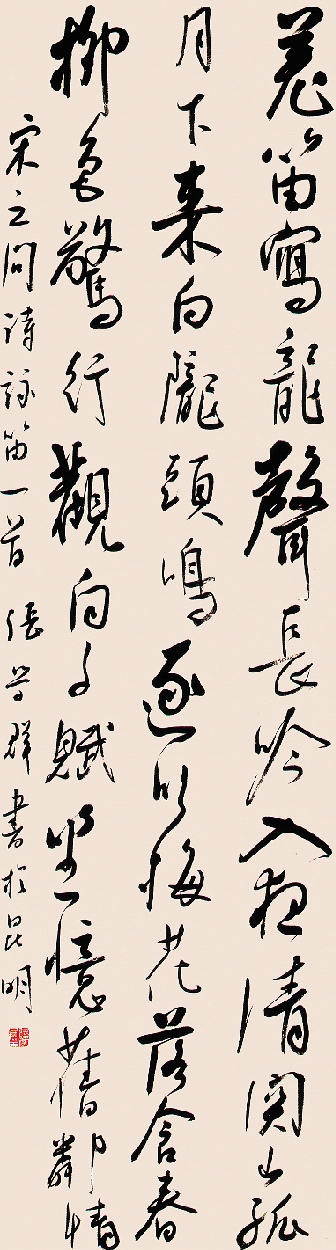 羌笛寫龍聲長吟入夜清關山孤
月下來向隴頭鳴逐吹梅花落含春
柳色驚行觀向子賦坐憶舊鄰情
宋之問詩詠笛一首 張群書於昆明